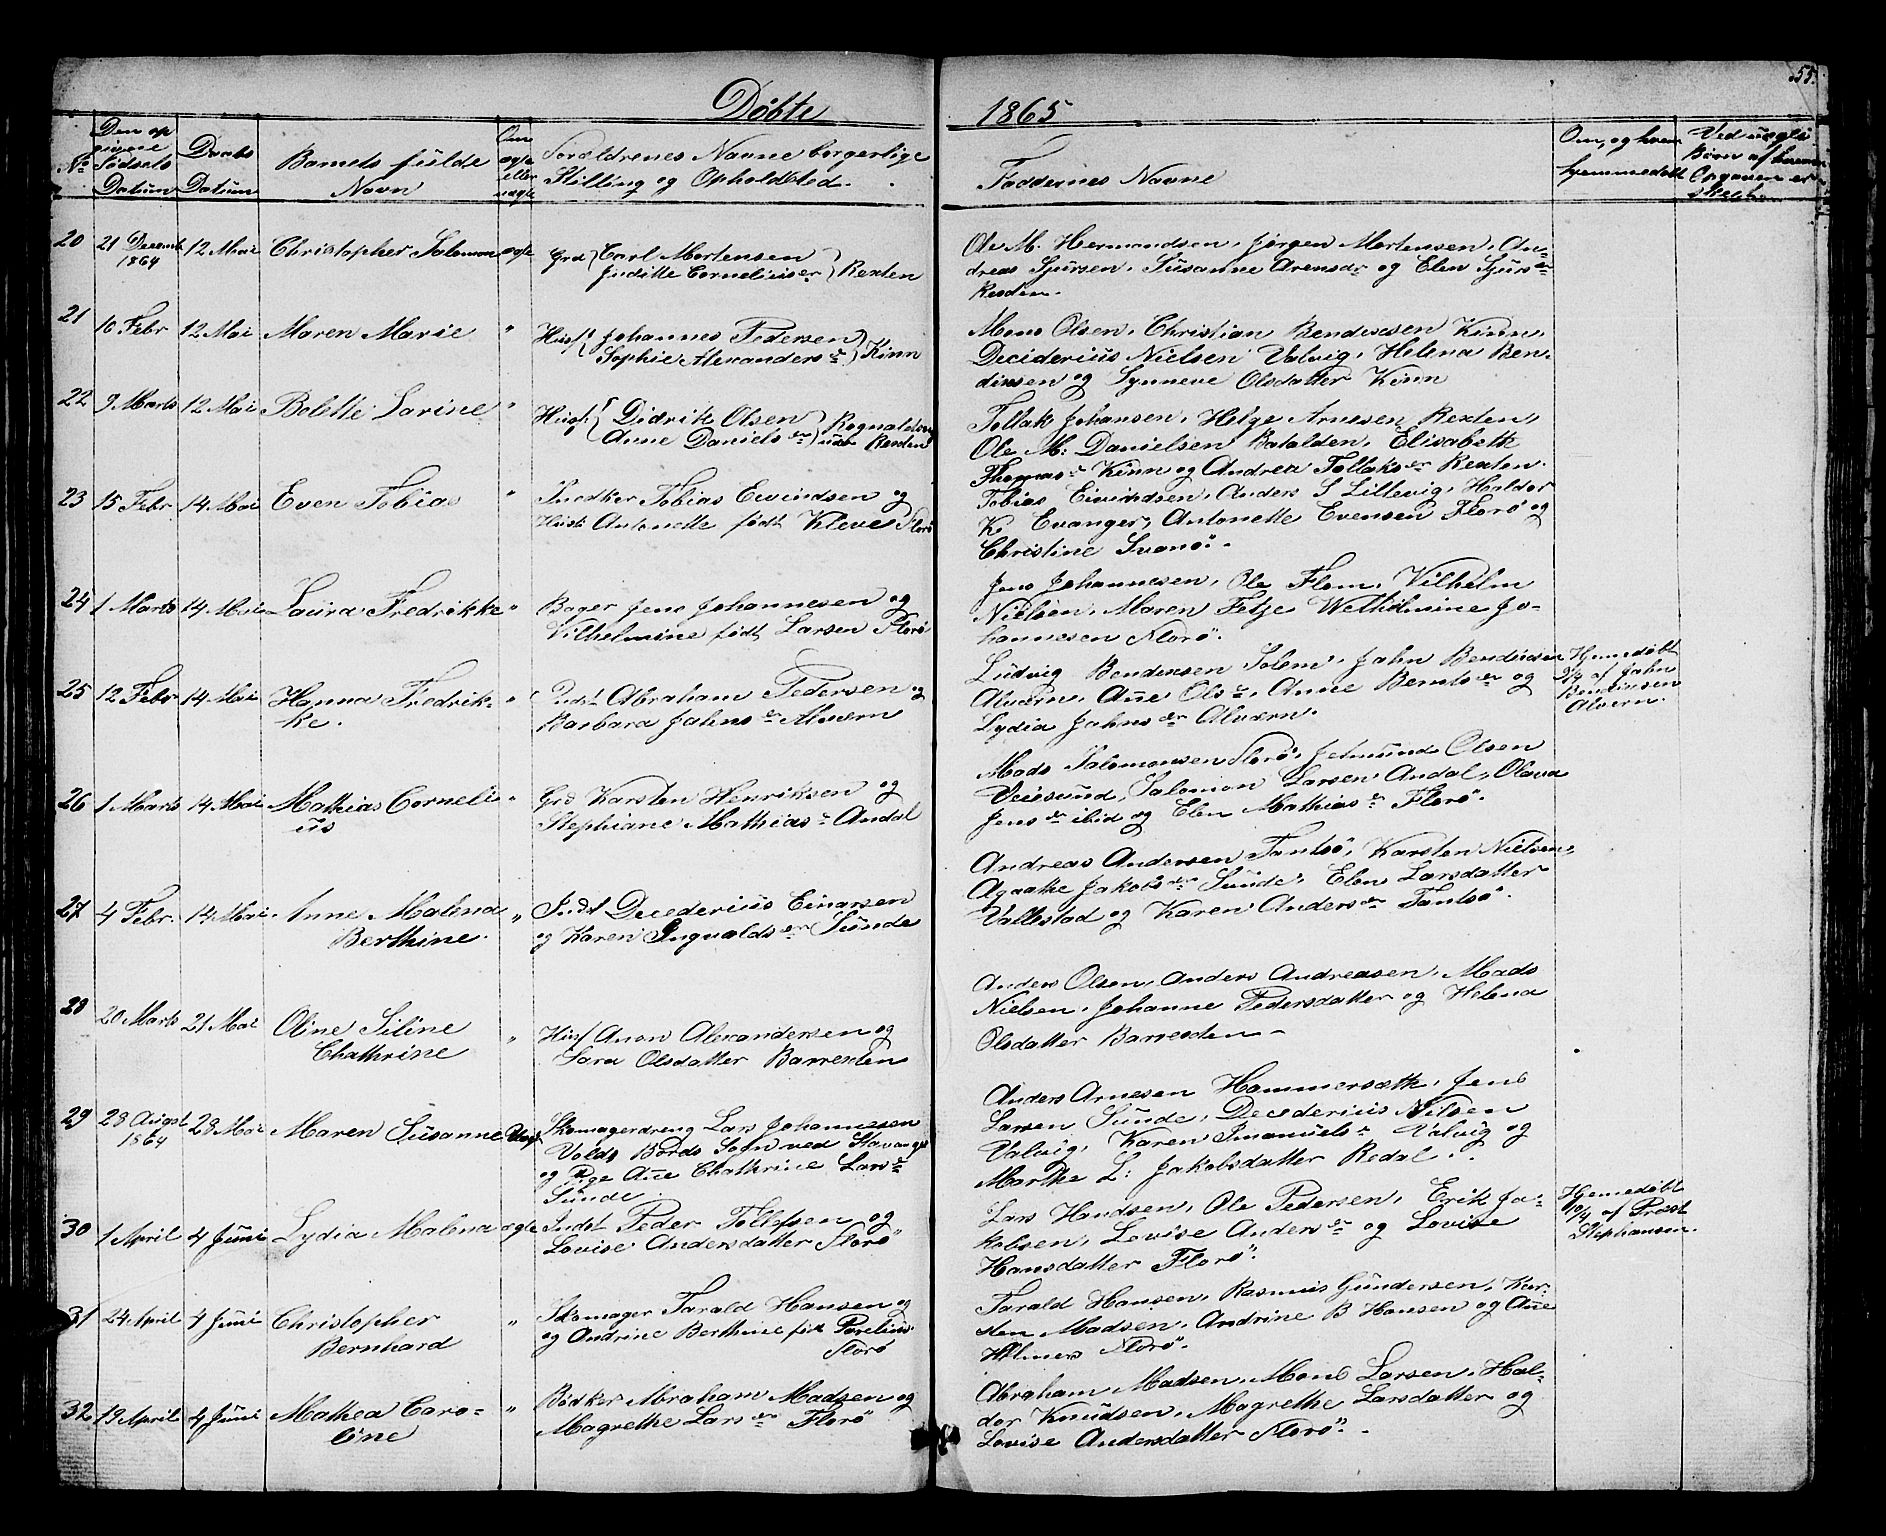 55.
Døbte
1865
No
Den op
givne
Fødsels
Datum
Daabs
Datum
Barnets fulde
Navn
Om
ægte
eller
uægte
Forældrenes Navne borgerlige
Stilling og Opholdsted.
Faddernes Navne
Om, og hvem
hjemmedøbt
Ved uægte
Børn af hvem
Opgaven er
skeet
20
21 Decemb
1864
12 Mai
Christopher Salomon
ægte
Grd Carl Mortensen
Juditte Corneliusdr
Rexten
Ole M. Hermandsen, Jørgen Mortensen, An-
dreas Sjursen, Susanne Arensdr og Elen Sjursdr
Rexten.
21
10 Febr
12 Mai
Maren Marie
"
Husf Johannes Pedersen
Sophie Alexandersdr
Kinn
Mons Olsen, Christian Bendixsen Kinn,
Deciderius Nielsen Valvig, Helena Ben-
dixsen og Synneve Olsdatter Kinn
22
9 Marts
12 Mai
Bolette Larine
"
Husf. Didrik Olsen
Anne Danielsdr
Rognalden
under Rexten
Tollak Johansen, Helge Arnesen Rexten,
Ole M. Danielsen Batalden, Elisabeth
Thomasdr Kinn og Andrea Tollaksdr Rexten.
23
15 Febr
14 Mai
Even Tobias
"
Snedker Tobias Eivindsen og
Hust Antonette født Kleve Florø
Tobias Eivindsen, Anders S Lillevig, Haldor
K. Evanger, Antonette Evensen Florø og
Christine Svanø. -
24
1 Marts
14 Mai
Laura Fredrikke
"
Bager Jens Johannesen og
Vilhelmine født Larsen Florø
Jens Johannesen, Ole Flom, Vilhelm
Nielsen, Maren Fetje Welhelmine Jo-
hannesen Florø.
25
12 Febr
14 Mai
Hanna Fredrik-
ke.
"
Indst Abraham Pedersen og
Barbara Jahnsdr Alværn
Ludvig Bendixsen Solem, Jahn Bendixsen
Alværn, Ane Olsdr, Anne Berntsdr og
Lydia Jahnsdr Alværn.
Hjemedøbt
9/4 af Jahn
Bendixsen
Alvern.
26
1 Marts
14 Mai
Mathias Corneli
us
"
Grd Karsten Henriksen og
Stephiane Mathiasdr Andal
Mads Salomonsen Florø, Jetmund Olsen
Veiesund, Salomon Larsen Andal, Olava
Jensdr ibid og Elen Mathiasdr Florø.
27
4 Febr.
14 Mai
Anne Malena
Berthine.
"
Indst Decederius Einarsen
og Karen Ingvaldsdr Sunde
Andreas Andersen Tansø, Karsten Nielsen,
Agathe Jakobsdr Sunde, Elen Larsdatter
Vallestad og Karen Andersdr Tansø.
28
20 Marts
21 Mai
Oline Siline
Chathrine
"
Husf Anon Alexandersen og
Sara Olsdatter Barrexten
Anders Olsen, Anders Andreasen, Mads
Nielsen, Johanne Pedersdatter og Helena
Olsdatter Barrexten -
29
28 August
1864
28 Mai
Maren Susanne
Uægt
Skomagerdreng Lars Johannesen
Volds Bords Sogn ved Stavanger
og Pige Ane Chathrine Larsdr
Sunde
Anders Arnesen Hammersæth, Jens
Larsen Sunde, Decederius Nilsen
Valvig, Karen Imanuelsdr Valvig og
Marthe L: Jakobsdatter Redal.
30
1 April
4 Juni
Lydia Malena
ægte
Indst Peder Tollefsen og
Lovise Andersdatter Florø
Lars Handsen, Ole Pedersen, Erik Ja-
kobsen, Lovise Andersdr og Lovise
Hansdatter Florø.
Hjemedøbt
10/4 af Provst
Stephansen.
31
24 April
4 Juni
Christopher
Bernhard
"
Skomager Tarald Hansen og
og Andrine Berthine født Parelius
Florø
Tarald Hansen, Rasmus Gundersen, Kar-
sten Madsen, Andrine B Hansen og Ane
Helmers Florø.
32
19 April
4 Juni
Mathea Caro-
line
"
Bødker Abraham Madsen og
Magrethe Larsdr Florø
Abraham Madsen, Mons Larsen, Hal-
dor Knudsen, Magrethe Larsdatter og
Lovise Andersdatter Florø. -